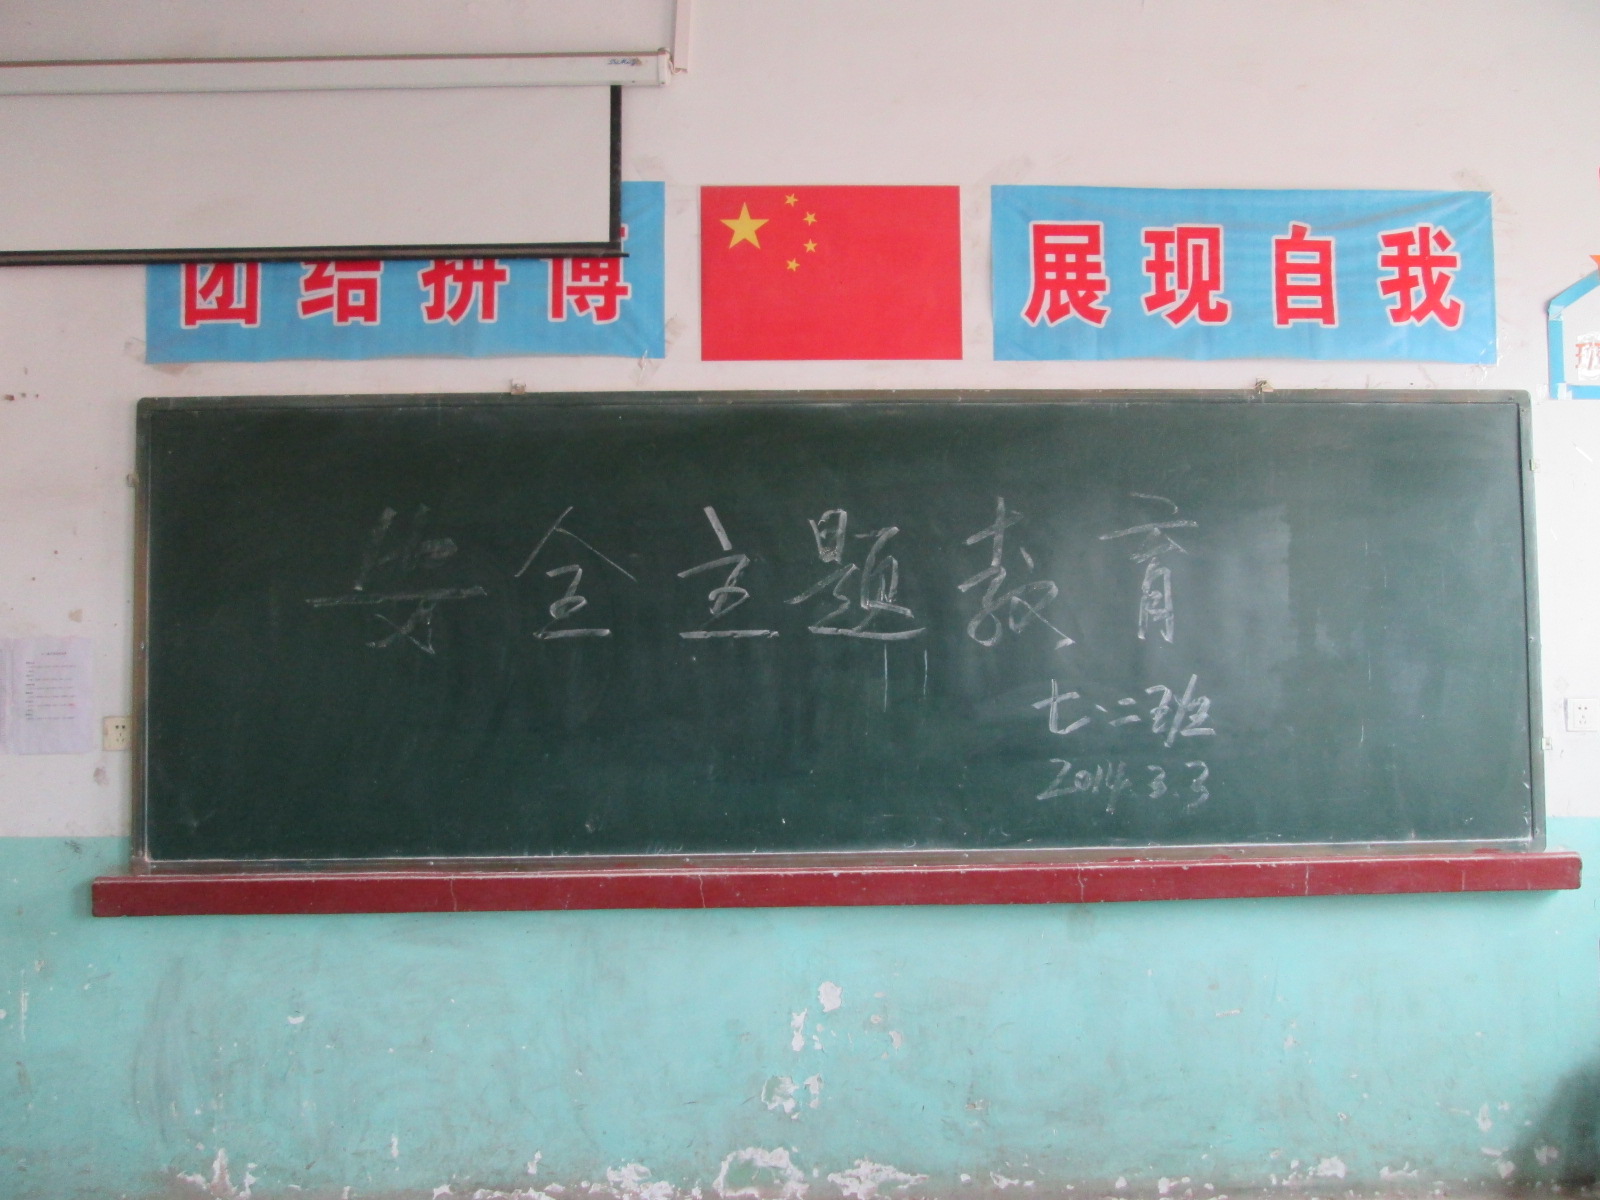 团结拼博
展现自我
安全主题教育
七.二班
2014.3.3